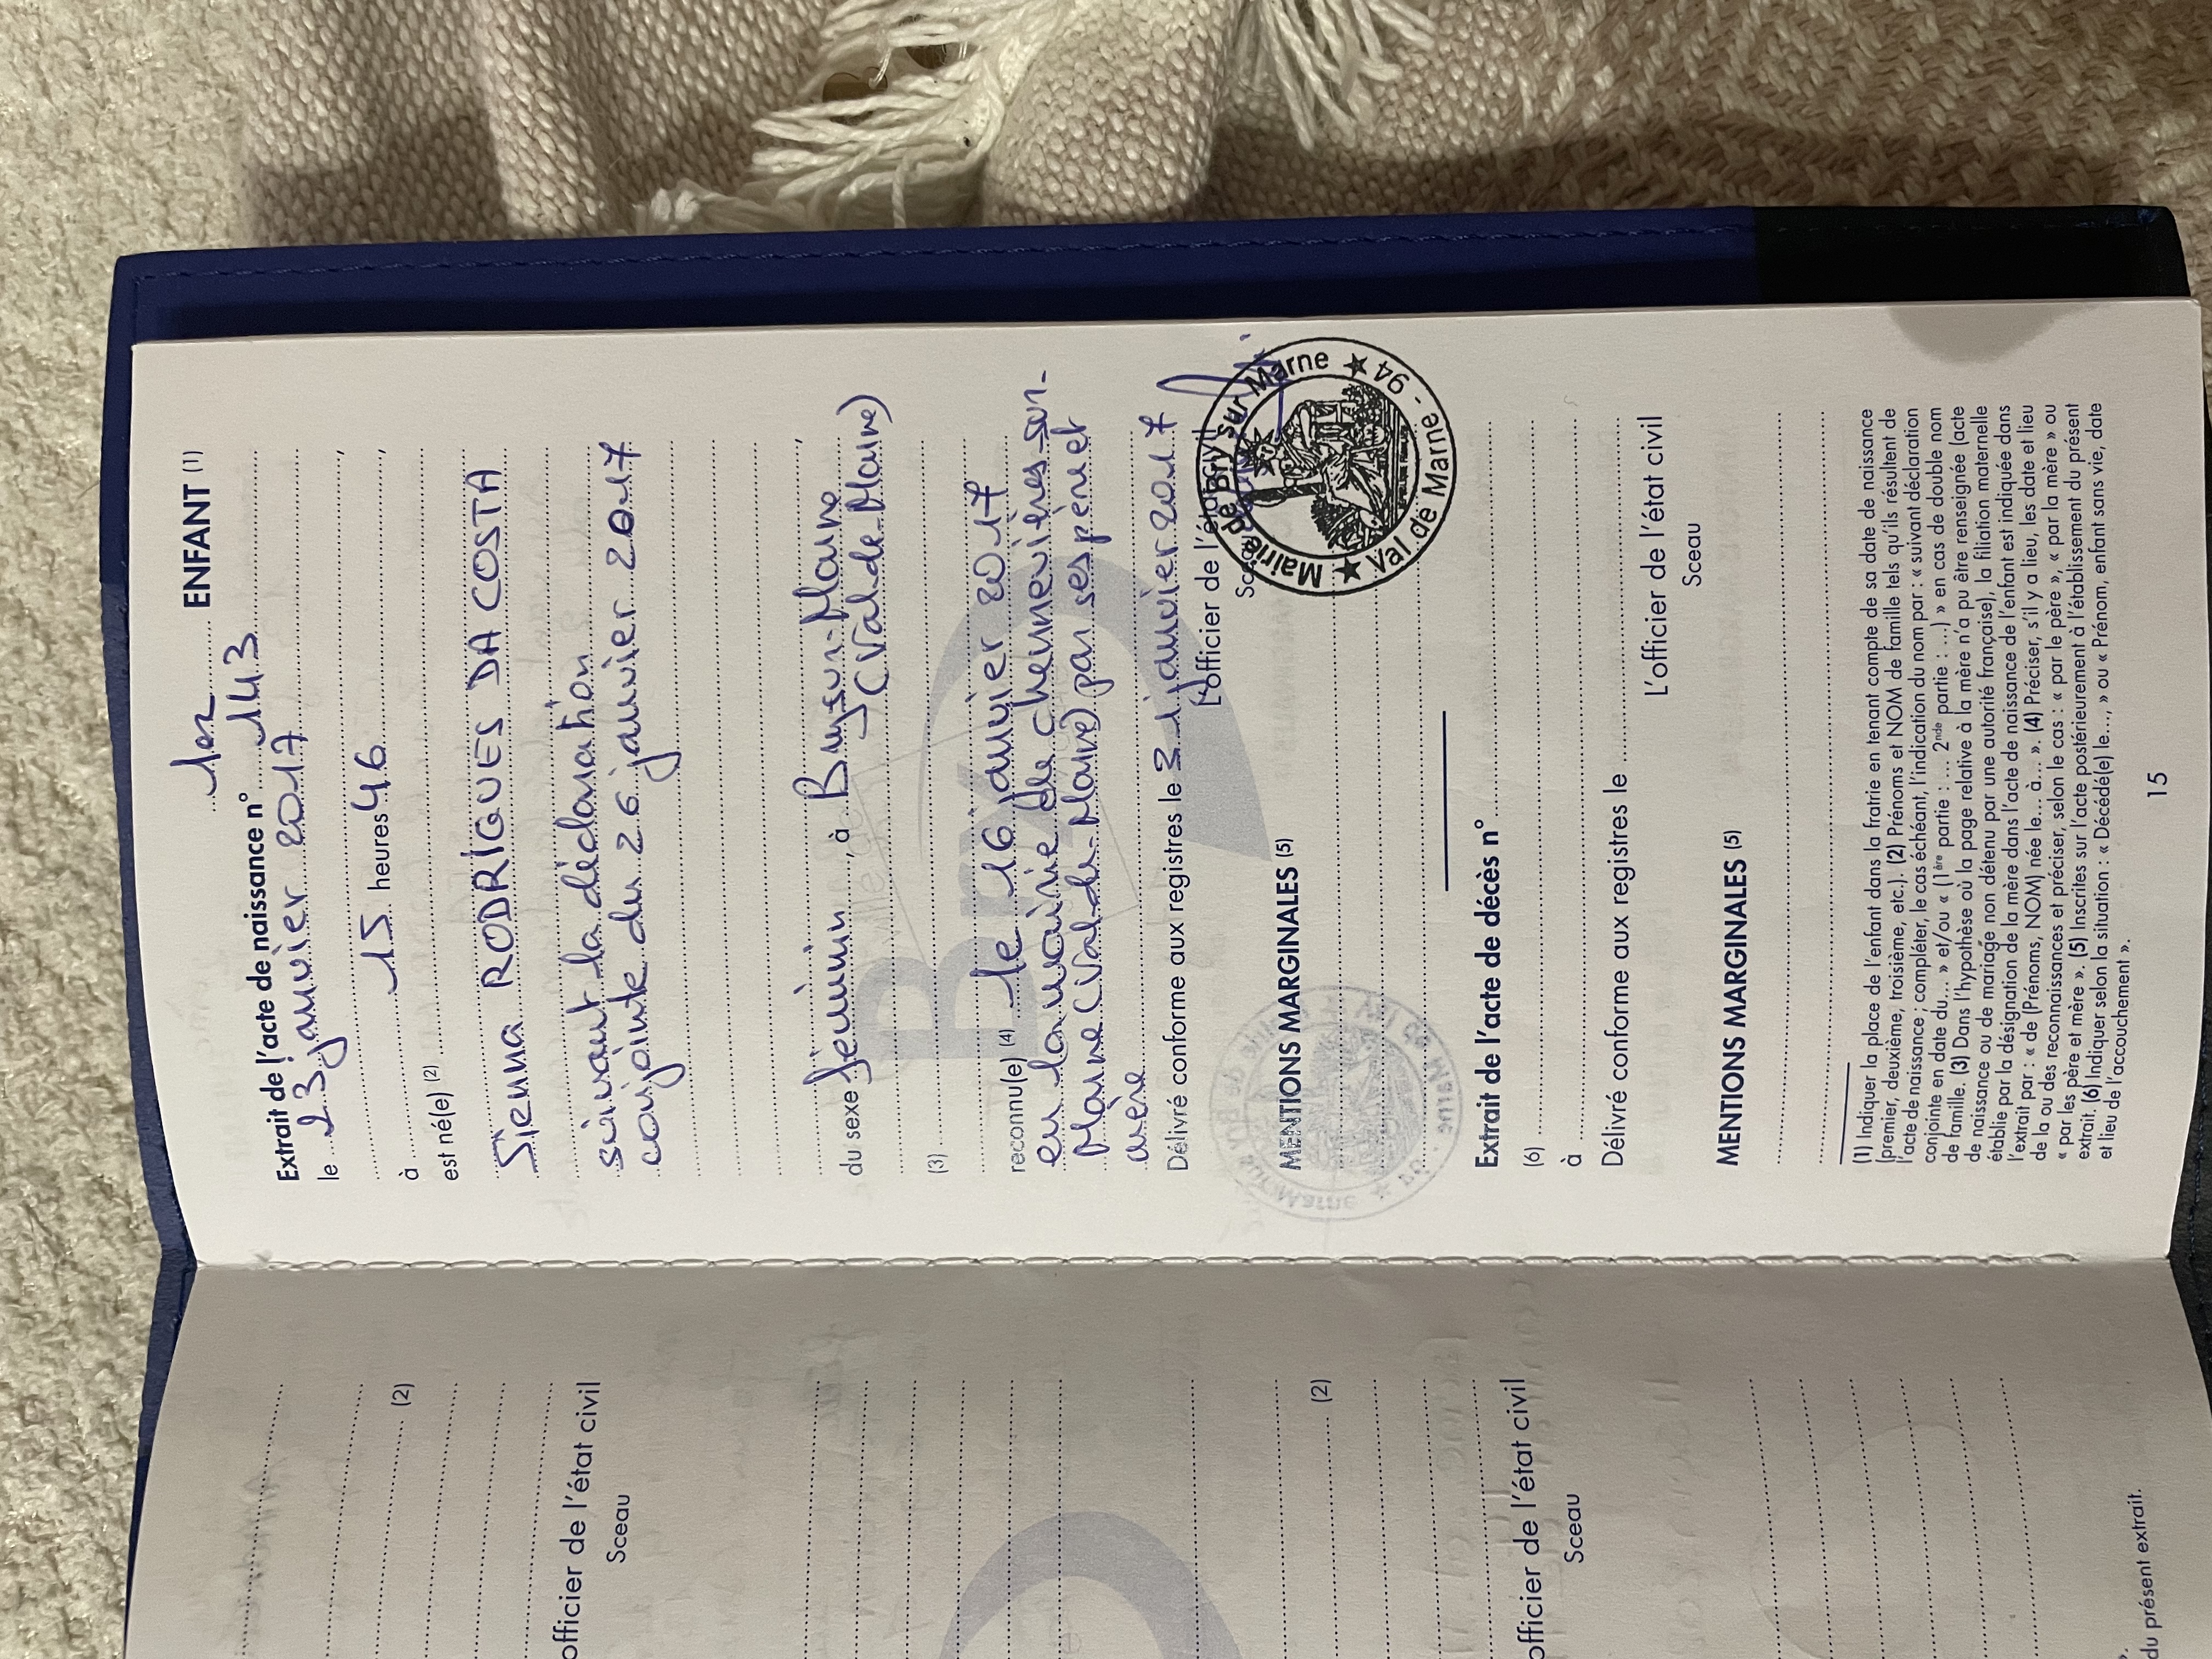 1er ENFANT (1)
Extrait de l'acte de naissance n° 143
le 23 janvier 2017
à 15 heures 46
est né(e) (2)
Sienna RODRIGUES DA COSTA
suivant la déclaration
conjointe du 26 janvier 2017
du sexe féminin, à Bry-sur-Marne
(Val-de-Marne)
(3)
reconnu(e) (4) le 16 janvier 2017
en la mairie de Chennevières-sur-
Marne (Val-de-Marne) par ses père et
mère
Délivré conforme aux registres le 31 janvier 2017
L'officier de l'état civil
Sceau
Mairie de Bry sur Marne ★ 94 - Val de Marne ★
MENTIONS MARGINALES (5)
Extrait de l'acte de décès n°
(6)
à
Délivré conforme aux registres le
L'officier de l'état civil
Sceau
MENTIONS MARGINALES (5)
(1) Indiquer la place de l'enfant dans la fratrie en tenant compte de sa date de naissance
(premier, deuxième, troisième, etc.). (2) Prénoms et NOM de famille tels qu'ils résultent de
l'acte de naissance ; compléter, le cas échéant, l'indication du nom par : « suivant déclaration
conjointe en date du... » et/ou « (1ère partie : ... 2nde partie : ...) » en cas de double nom
de famille. (3) Dans l'hypothèse où la page relative à la mère n'a pu être renseignée (acte
de naissance ou de mariage non détenu par une autorité française), la filiation maternelle
établie par la désignation de la mère dans l'acte de naissance de l'enfant est indiquée dans
l'extrait par : « de (Prénoms, NOM) née le... à... ». (4) Préciser, s'il y a lieu, les date et lieu
de la ou des reconnaissances et préciser, selon le cas : « par le père », « par la mère » ou
« par les père et mère ». (5) Inscrites sur l'acte postérieurement à l'établissement du présent
extrait. (6) Indiquer selon la situation : « Décédé(e) le... » ou « Prénom, enfant sans vie, date
et lieu de l'accouchement ».
15
(2)
officier de l'état civil
Sceau
(2)
officier de l'état civil
Sceau
du présent extrait.